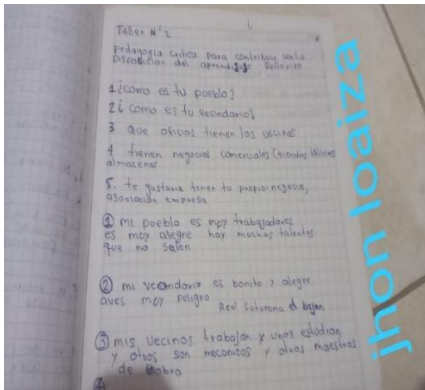 Taller N° 2
pedagogia critica para contribuir con la
Discusion del aprendizaje Reflexivo
1 ¿como es tu pueblo?
2 ¿ como es tu vecindario?
3 que oficios tienen los vecinos
4 tienen negocios comerciales (tiendas
almacenes
5. te gustaria tener tu propio negocio,
asociación empresa
① mi pueblo es moy trabajadores
es moy alegre hay muchos talentos
que no salen
② mi vecindario es bonito y alegre
aves moy peligro
③ mis vecinos trabajan y unos estudian
y otros son mecanicos y otros maestros
de obra
④
jhon loaiza